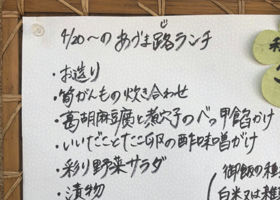 4/20〜のあづま路ランチ
・お造り
・筍がんもの炊き合わせ
・葛胡麻豆腐と煮穴子のべっ甲餡かけ
・いいだことたこ卵の酢味噌がけ
・彩り野菜サラダ
・漬物
御飯の種
白米又は雑